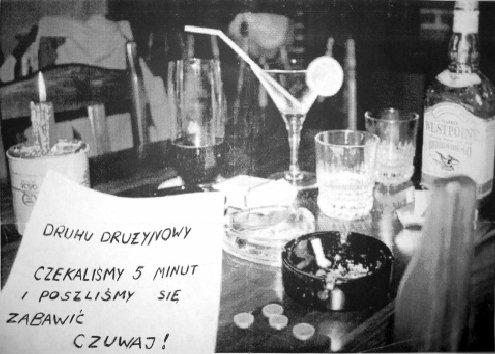 DRUHU DRUŻYNOWY
CZEKALIŚMY 5 MINUT
I POSZLIŚMY SIĘ
ZABAWIĆ
CZUWAJ!
WESTPOINT